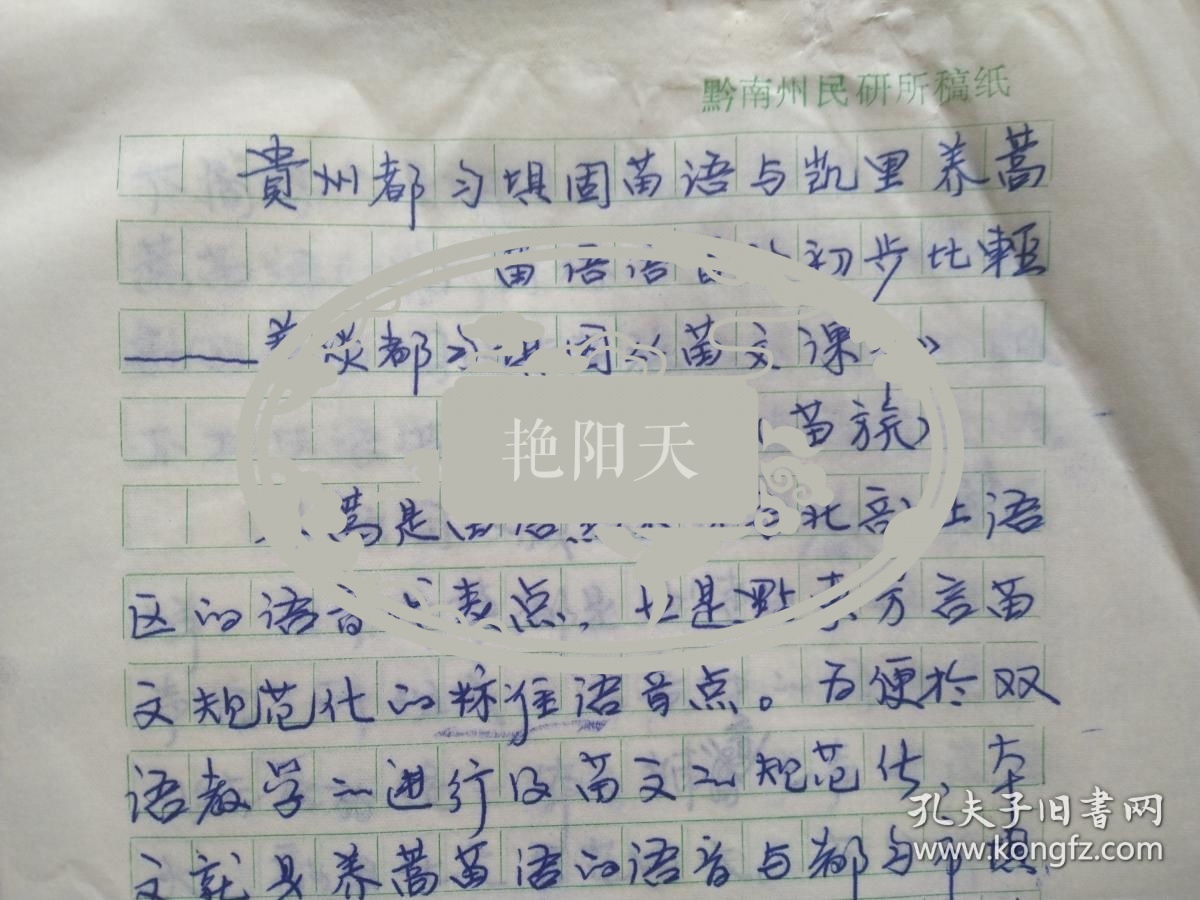 黔南州民研所稿纸
貴州都匀垻固苗语与凯里养蒿
苗语语音 初步比較
——兼谈都匀 《苗文课 》
(苗族)
蒿是 语 北部土语
区的语音代表点, 也是黔东方言苗
文规范化的标准语音点。为便於双
语教学之进行及苗文之规范化,本
文就是养蒿苗语的语音与都匀市垻
艳阳天
孔夫子旧书网
www.kongfz.com